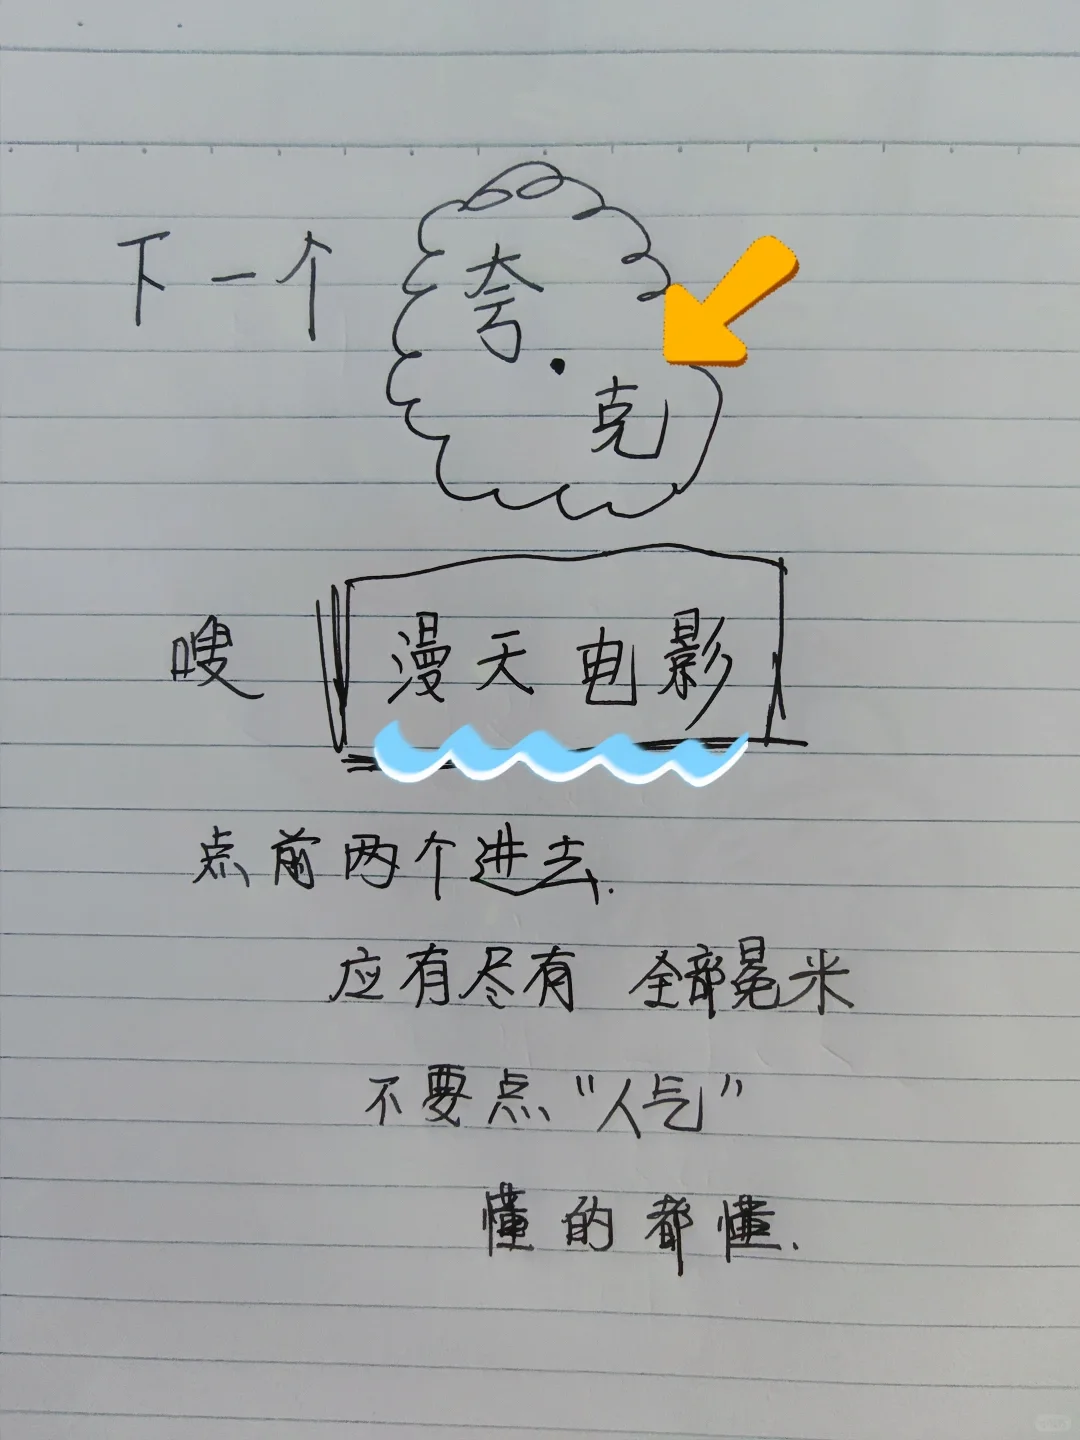 下一个 夸·克
嗖 漫天电影
点前两个进去.
应有尽有 全部冕米
不要点“人气”
懂的都懂.